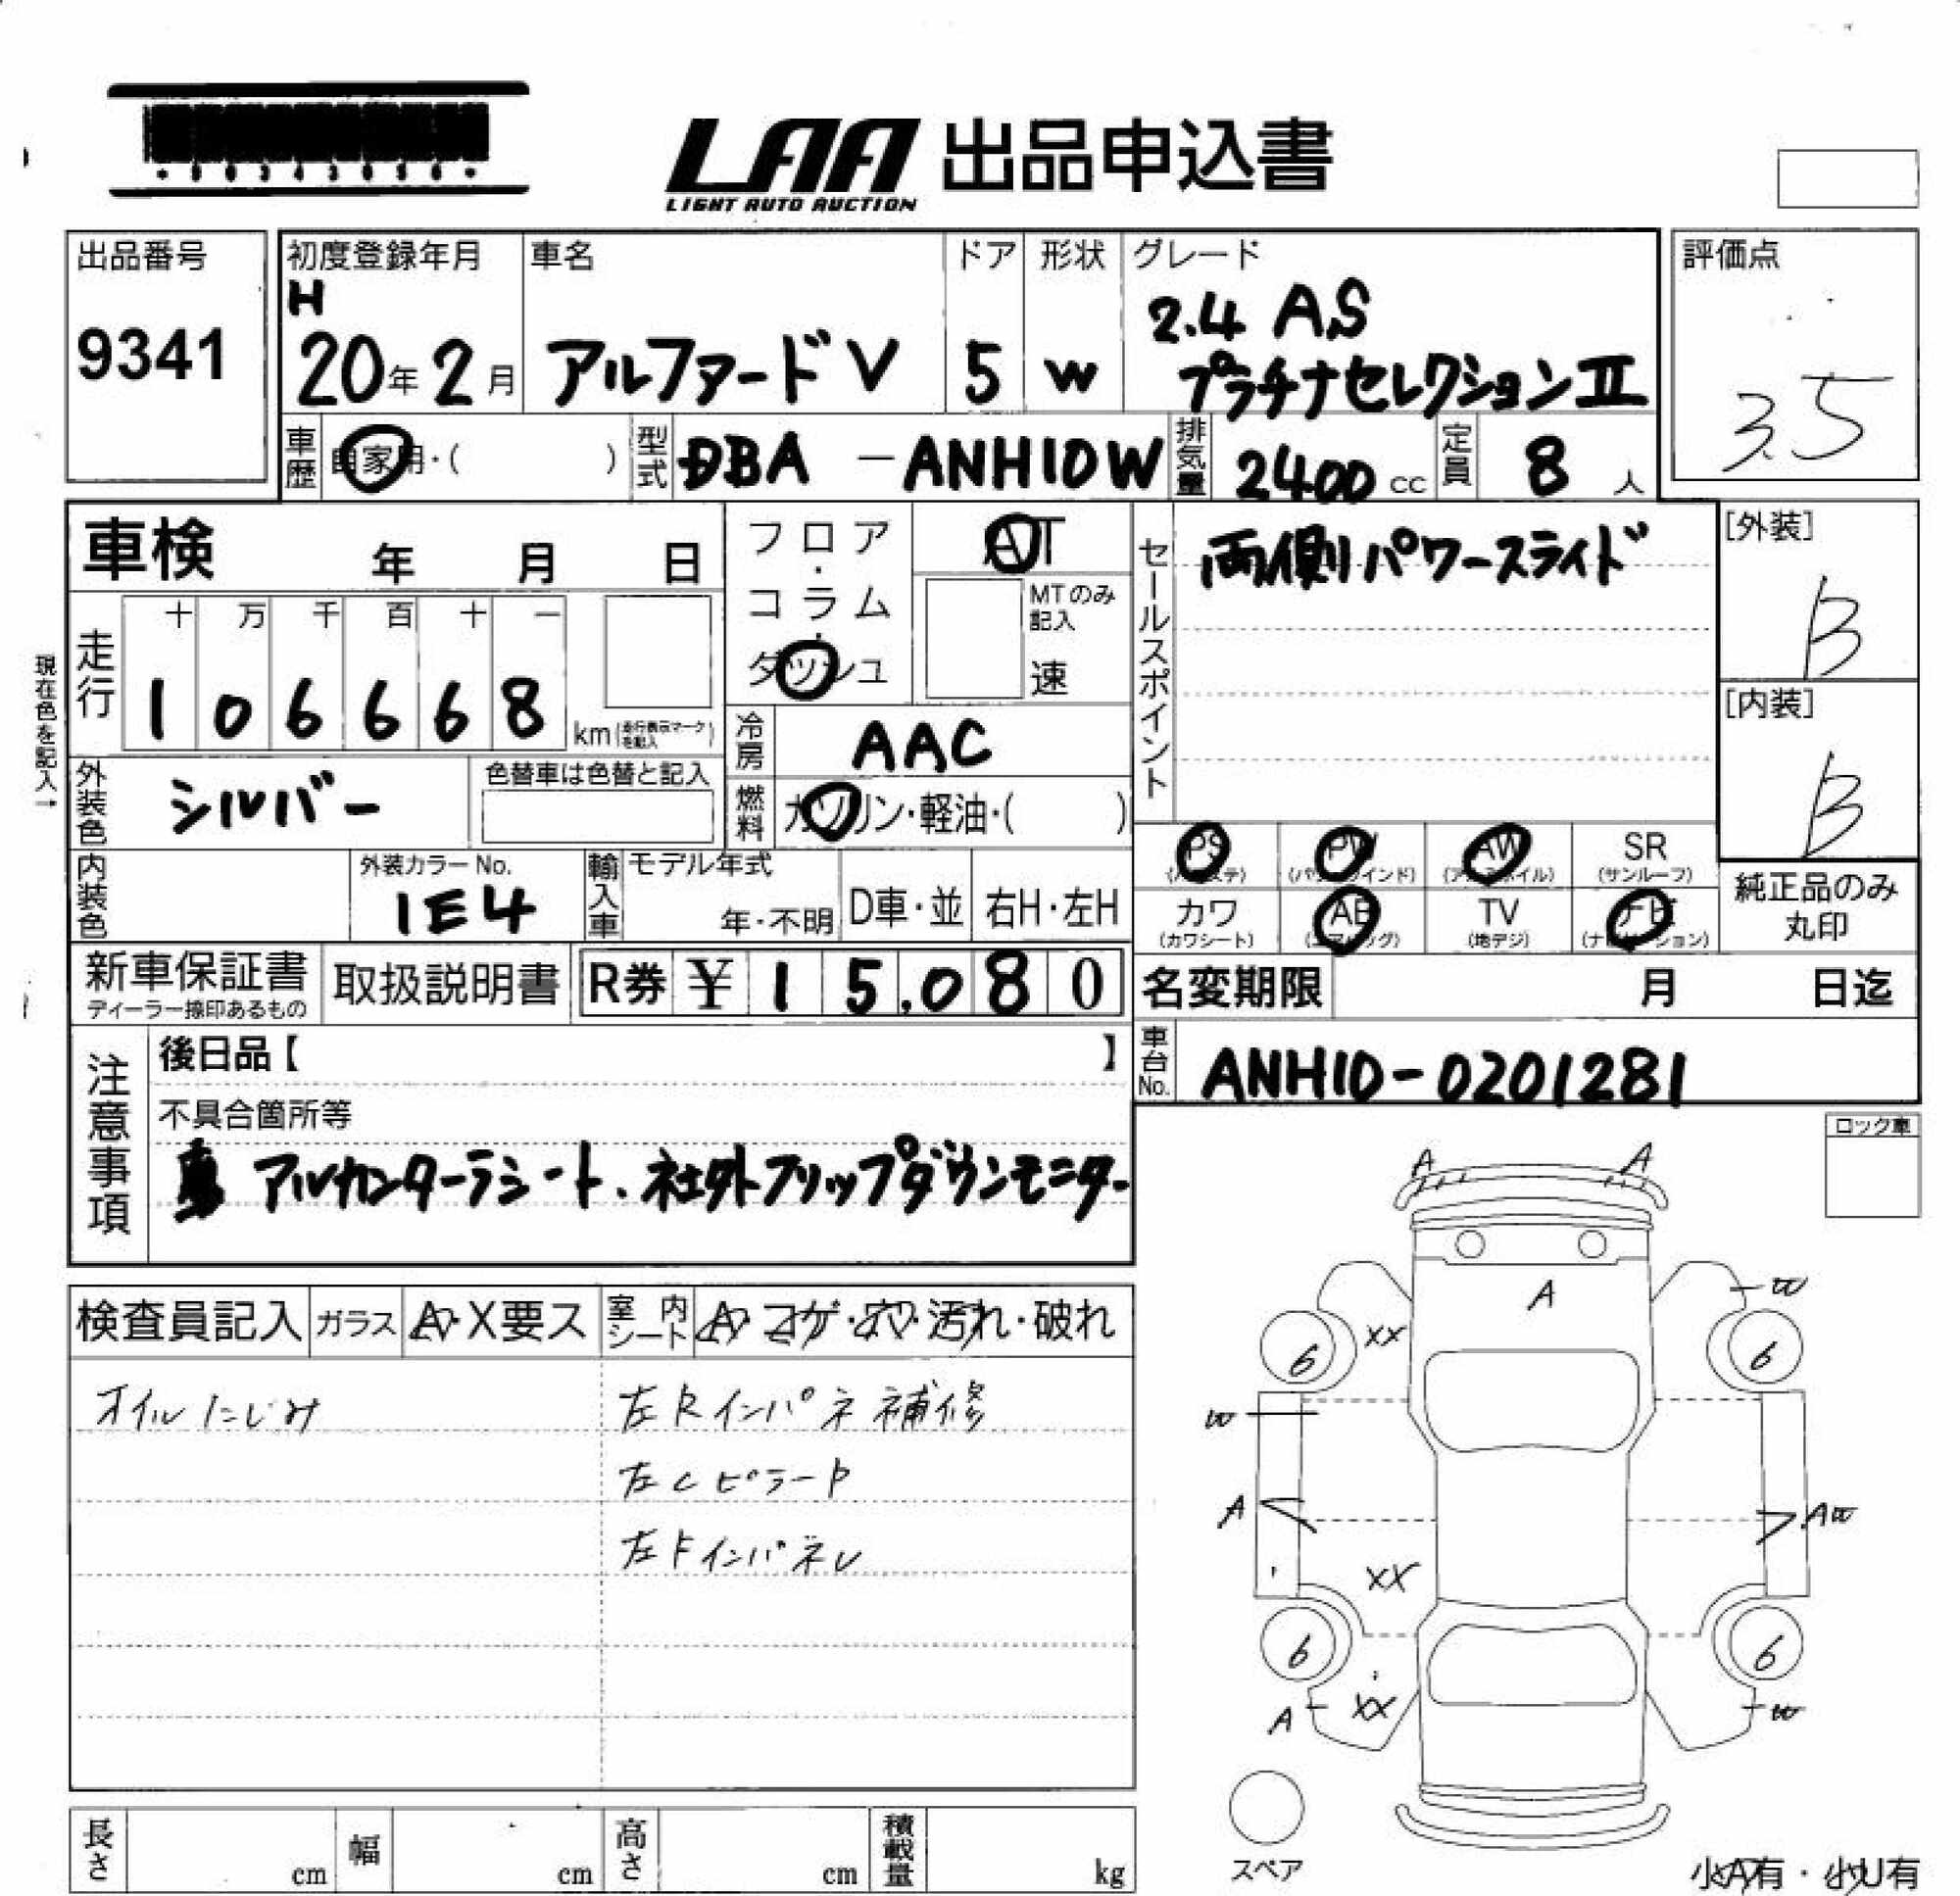 LAA 出品申込書
LIGHT AUTO AUCTION
出品番号
9341
初度登録年月
H
20年2月
車名
アルファードV
ドア
5
形状
W
グレード
2.4 AS
プラチナセレクションⅡ
評価点
3.5
車歴
自家用・( )
型式
DBA-ANH10W
排気量
2400cc
定員
8人
車検 年 月 日
フロア・コラム・ダッシュ
AT
MTのみ記入
速
セールスポイント
両側パワースライド
[外装]
B
[内装]
B
現在色を記入→
走行
十 万 千 百 十 一
1 0 6 6 6 8
km(走行表示マークを記入)
冷房
AAC
外装色
シルバー
色替車は色替と記入
燃料
ガソリン・軽油・( )
内装色
外装カラーNo.
1E4
輸入車
モデル年式
年・不明
D車・並
右H・左H
PS
(パワステ)
PW
(パワーウインド)
AW
(アルミホイル)
SR
(サンルーフ)
カワ
(カワシート)
AB
(エアバッグ)
TV
(地デジ)
ナビ
(ナビゲーション)
純正品のみ
丸印
新車保証書
ディーラー捺印あるもの
取扱説明書
R券 ¥ 15,080
名変期限 月 日迄
車台No.
ANH10-0201281
注意事項
後日品【 】
不具合箇所等
アルカンターラシート、社外フリップダウンモニター
ロック車
検査員記入
ガラス
A・X要ス
室内シート
A コゲ・穴・汚れ・破れ
オイルにじみ
左Rインパネ補修
左CピラーP
左Fインパネレ
A
A
A
W
XX
6
6
W
A
AW
XX
6
6
A
XX
W
スペア
小A有・小U有
長さ cm
幅 cm
高さ cm
積載量 kg